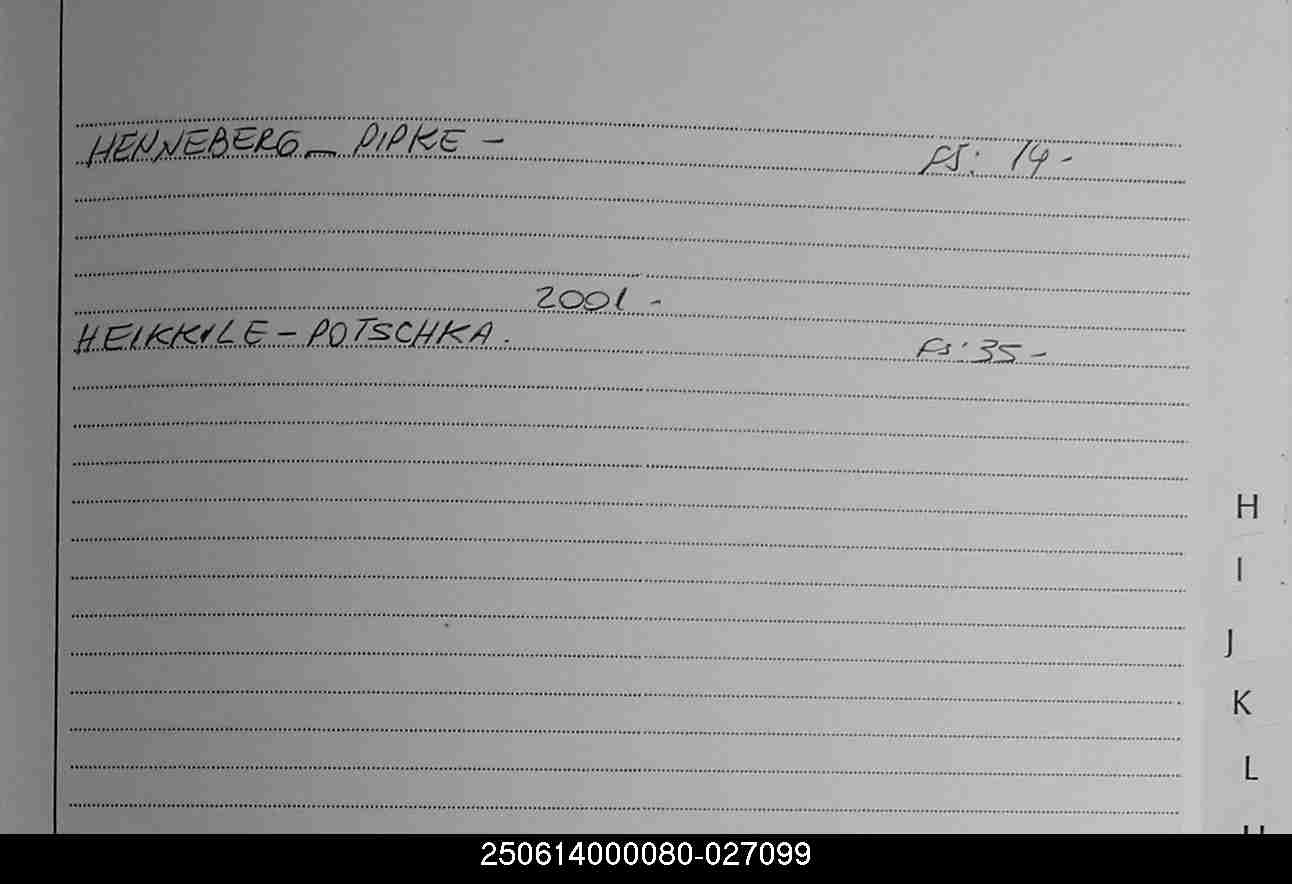 HENNEBERG - PIPKE - FS: 14 -
2001 -
HEIKKILE - POTSCHKA. FS: 35 -
H
I
J
K
L
250614000080-027099